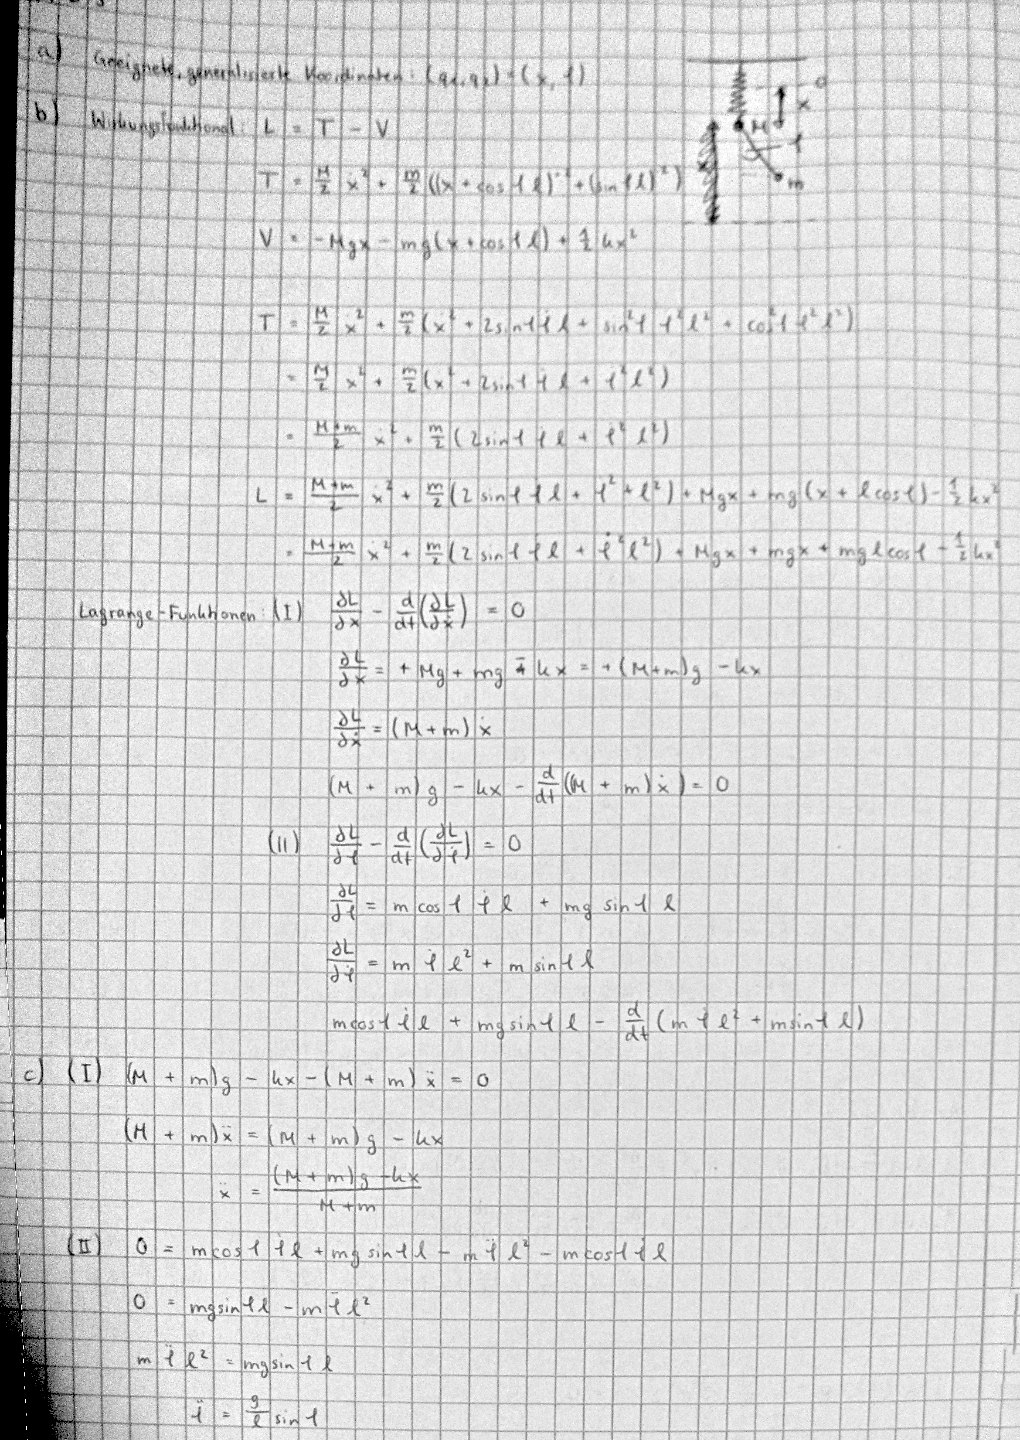 a) Geeignete, generalisierte Koordinaten: (q₁, q₂) = (x, φ)
b) Wirkungsfunktional: L = T - V
T = M/2 ẋ² + m/2 ((x + cosφ l)˙² + (sinφ l)˙²)
V = -Mgx - mg(x + cosφ l) + 1/2 kx²
0
x
M
φ
m
T = M/2 ẋ² + m/2 (ẋ² + 2sinφ φ̇ l + sin²φ φ̇² l² + cos²φ φ̇² l²)
= M/2 ẋ² + m/2 (ẋ² + 2sinφ φ̇ l + φ̇² l²)
= M+m/2 ẋ² + m/2 (2sinφ φ̇ l + φ̇² l²)
L = M+m/2 ẋ² + m/2 (2 sinφ φ̇ l + φ̇² + l²) + Mgx + mg (x + l cosφ) - 1/2 kx²
= M+m/2 ẋ² + m/2 (2 sinφ φ̇ l + φ̇² l²) + Mgx + mgx + mgl cosφ - 1/2 kx²
Lagrange-Funktionen: (I) ∂L/∂x - d/dt (∂L/∂ẋ) = 0
∂L/∂x = + Mg + mg - kx = + (M+m)g - kx
∂L/∂ẋ = (M+m) ẋ
(M + m) g - kx - d/dt ((M + m) ẋ) = 0
(II) ∂L/∂φ - d/dt (∂L/∂φ̇) = 0
∂L/∂φ = m cosφ φ̇ l + mg sinφ l
∂L/∂φ̇ = m φ̇ l² + m sinφ l
m cosφ φ̇ l + mg sinφ l - d/dt (m φ̇ l² + m sinφ l)
c) (I) (M + m)g - kx - (M + m) ẍ = 0
(M + m) ẍ = (M + m) g - kx
ẍ = (M+m)g - kx/M+m
(II) 0 = m cosφ φ̇ l + mg sinφ l - m φ̈ l² - m cosφ φ̇ l
0 = mg sinφ l - m φ̈ l²
m φ̈ l² = mg sinφ l
φ̈ = g/l sinφ